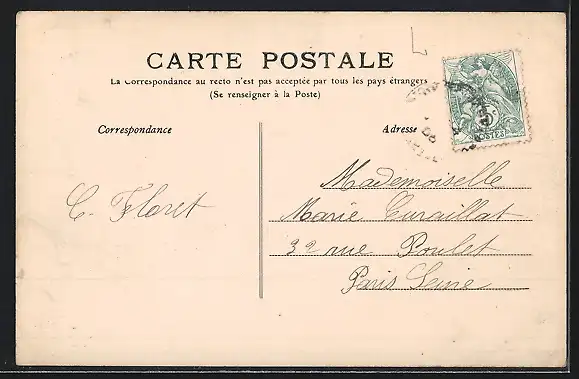 CARTE POSTALE
La Correspondance au recto n'est pas acceptée par tous les pays étrangers
(Se renseigner à la Poste)
Correspondance
Adresse
POSTES
C. Floret
Mademoiselle
Marie Curaillat
32 rue Poulet
Paris Seine